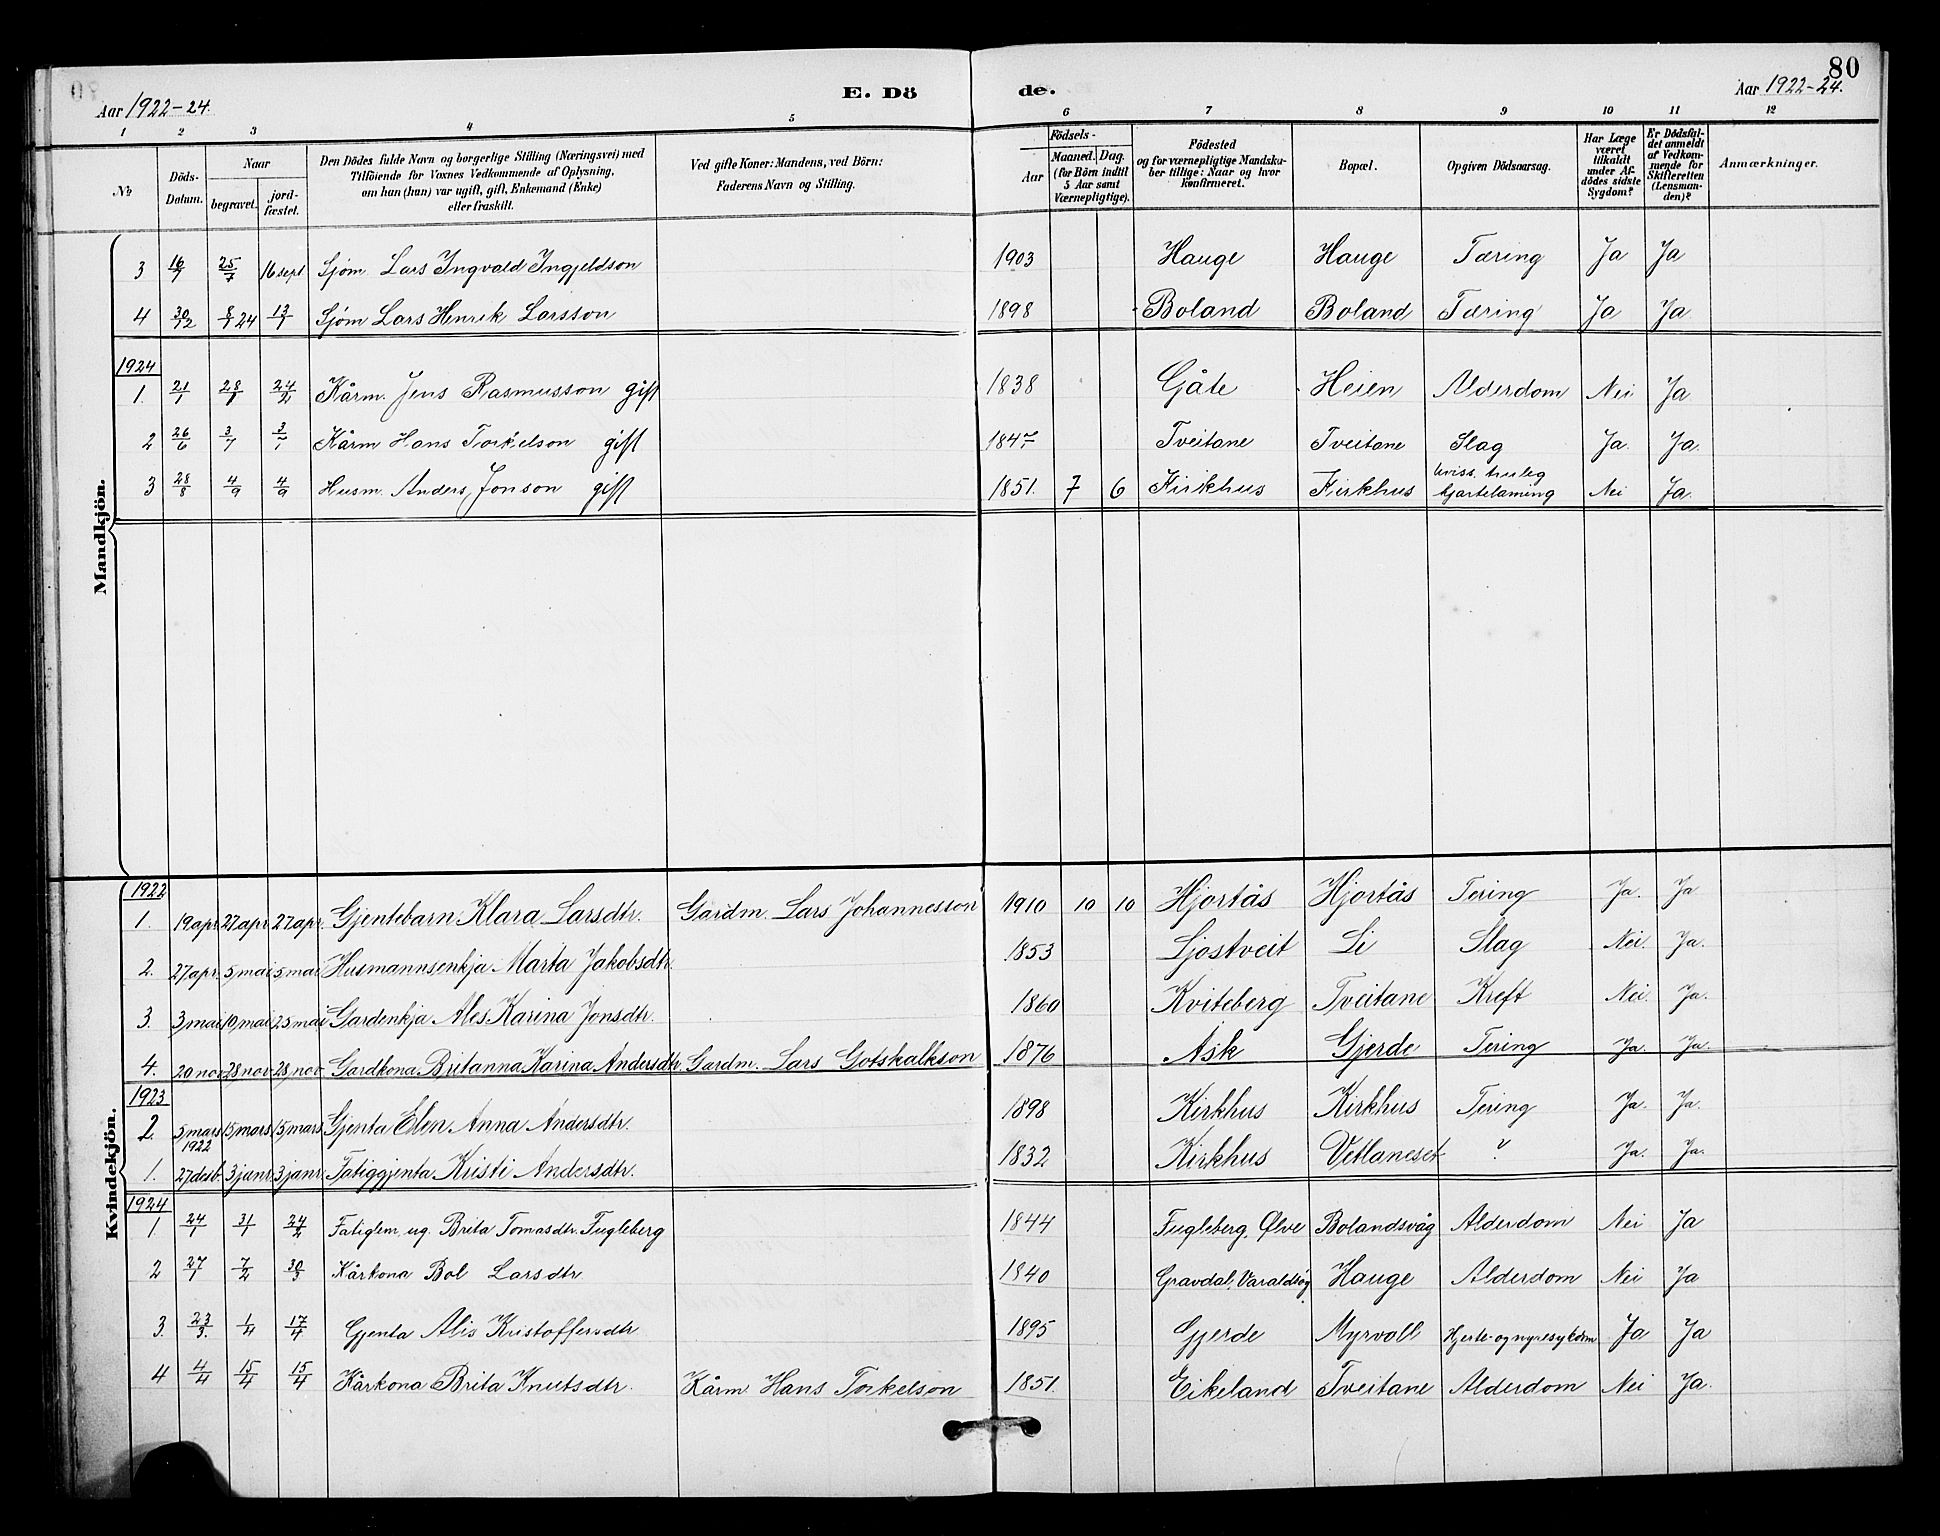 80
Aar 1922-24. E. Dö de. Aar 1922-24.
1 2 3 4 5 6 7 8 9 10 11 12
No
Döds-Datum.
Naar begravet. jord-fæstet.
Den Dödes fulde Navn og borgerlige Stilling (Næringsvei) med Tilföiende for Voxnes Vedkommende af Oplysning, om han (hun) var ugift, gift, Enkemand (Enke) eller fraskilt.
Ved gifte Koner: Mandens, ved Börn: Faderens Navn og Stilling.
Födsels- Aar Maaned. Dag. (for Börn indtil 5 Aar samt Værnepligtige).
Födested og for værnepligtige Mandskaber tillige: Naar og hvor konfirmeret.
Bopæl.
Opgiven Dödsaarsag.
Har Læge været tilkaldt under Afdödes sidste Sygdom?
Er Dödsfaldet anmeldt af Vedkommende for Skifteretten (Lensmanden)?
Anmærkninger.
Mandkjön.
3 16/7 25/7 16 sept Sjøm. Lars Ingvald Ingjeldson 1903 Hauge Hauge Tæring Ja Ja
4 30/12 8/1 24 13/1 Sjøm Lars Henrik Larsson 1898 Boland Boland Tæring Ja Ja
1924
1. 21/1 28/1 24/2 Kårm. Jens Rasmusson gift 1838 Gåte Heien Alderdom Nei Ja
2 26/6 3/7 3/7 Kårm Hans Torkelson gift 1847 Tveitane Tveitane Slag Ja. Ja.
3 28/8 4/9 4/9 Husm. Anders Jonson gift 1851. 7 6 Kirkhus Kirkhus uviss. truleg hjartelaming Nei Ja.
Kvindekjön.
1922
1. 19 apr 27 apr 27 apr. Gjentebarn Klara Larsdtr. Gardm. Lars Johannesson 1910 10 10 Hjortås Hjortås Tering Ja. Ja
2. 27 apr. 5 mai 5 mai Husmannsenkja Marta Jakobsdtr. 1853 Ljostveit Li Slag Nei. Ja.
3. 3 mai 10 mai 25 mai Gardenkja Ales Karina Jonsdtr. 1860 Kviteberg Tveitane Kreft Nei. Ja.
4. 20 nov 28 nov 28 nov Gardkona Britanna Karina Andersdtr. Gardm. Lars Gotskalkson 1876 Ask Gjerde Tering Ja. Ja.
1923
2. 5 mars 15 mars 15 mars Gjenta Elen Anna Andersdtr. 1898 Kirkhus Kirkhus Tering Ja. Ja.
1922
1. 27 desb. 3 janr. 3 janr. Fatiggjenta Kristi Andersdtr. 1832 Kirkhus Vetlaneset ? Ja. Ja.
1924
1. 24/1 31/1 24/2 Fatiglem, ug. Brita Tomasdtr. Fugleberg 1844 Fugleberg, Ølve Bolandsvåg Alderdom Nei Ja
2 27/1 7/2 30/3 Kårkona Bol Larsdtr 1840 Gravdal, Varaldsøy Hauge Alderdom Nei Ja
3. 23/3. 1/4 17/4 Gjenta Alis Kristoffersdtr 1895 Gjerde Myrvoll Hjerte- og nyresykdom Ja Ja
4 4/4 15/4 15/4 Kårkona Brita Knutsdtr. Kårm. Hans Torkelson 1851. Eikeland Tveitane Alderdom Nei Ja.